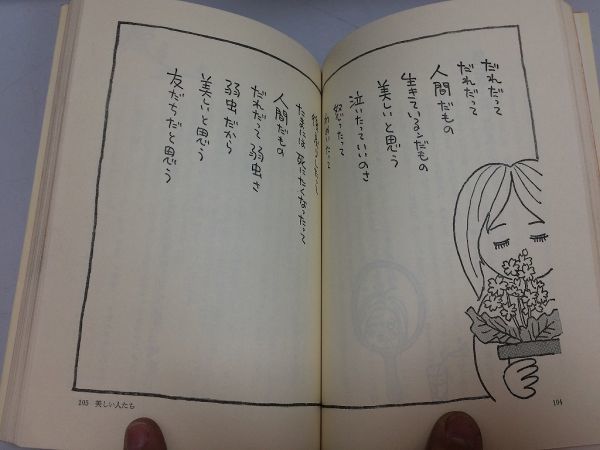 だれだって
だれだって
人間だもの
生きているンだもの
美しいと思う
泣いたっていいのさ
怒ったって
わめいたって
たまには死にたくなったって
人間だもの
だれだって弱虫さ
弱虫だから
美しいと思う
友だちだと思う
105 美しい人たち
104